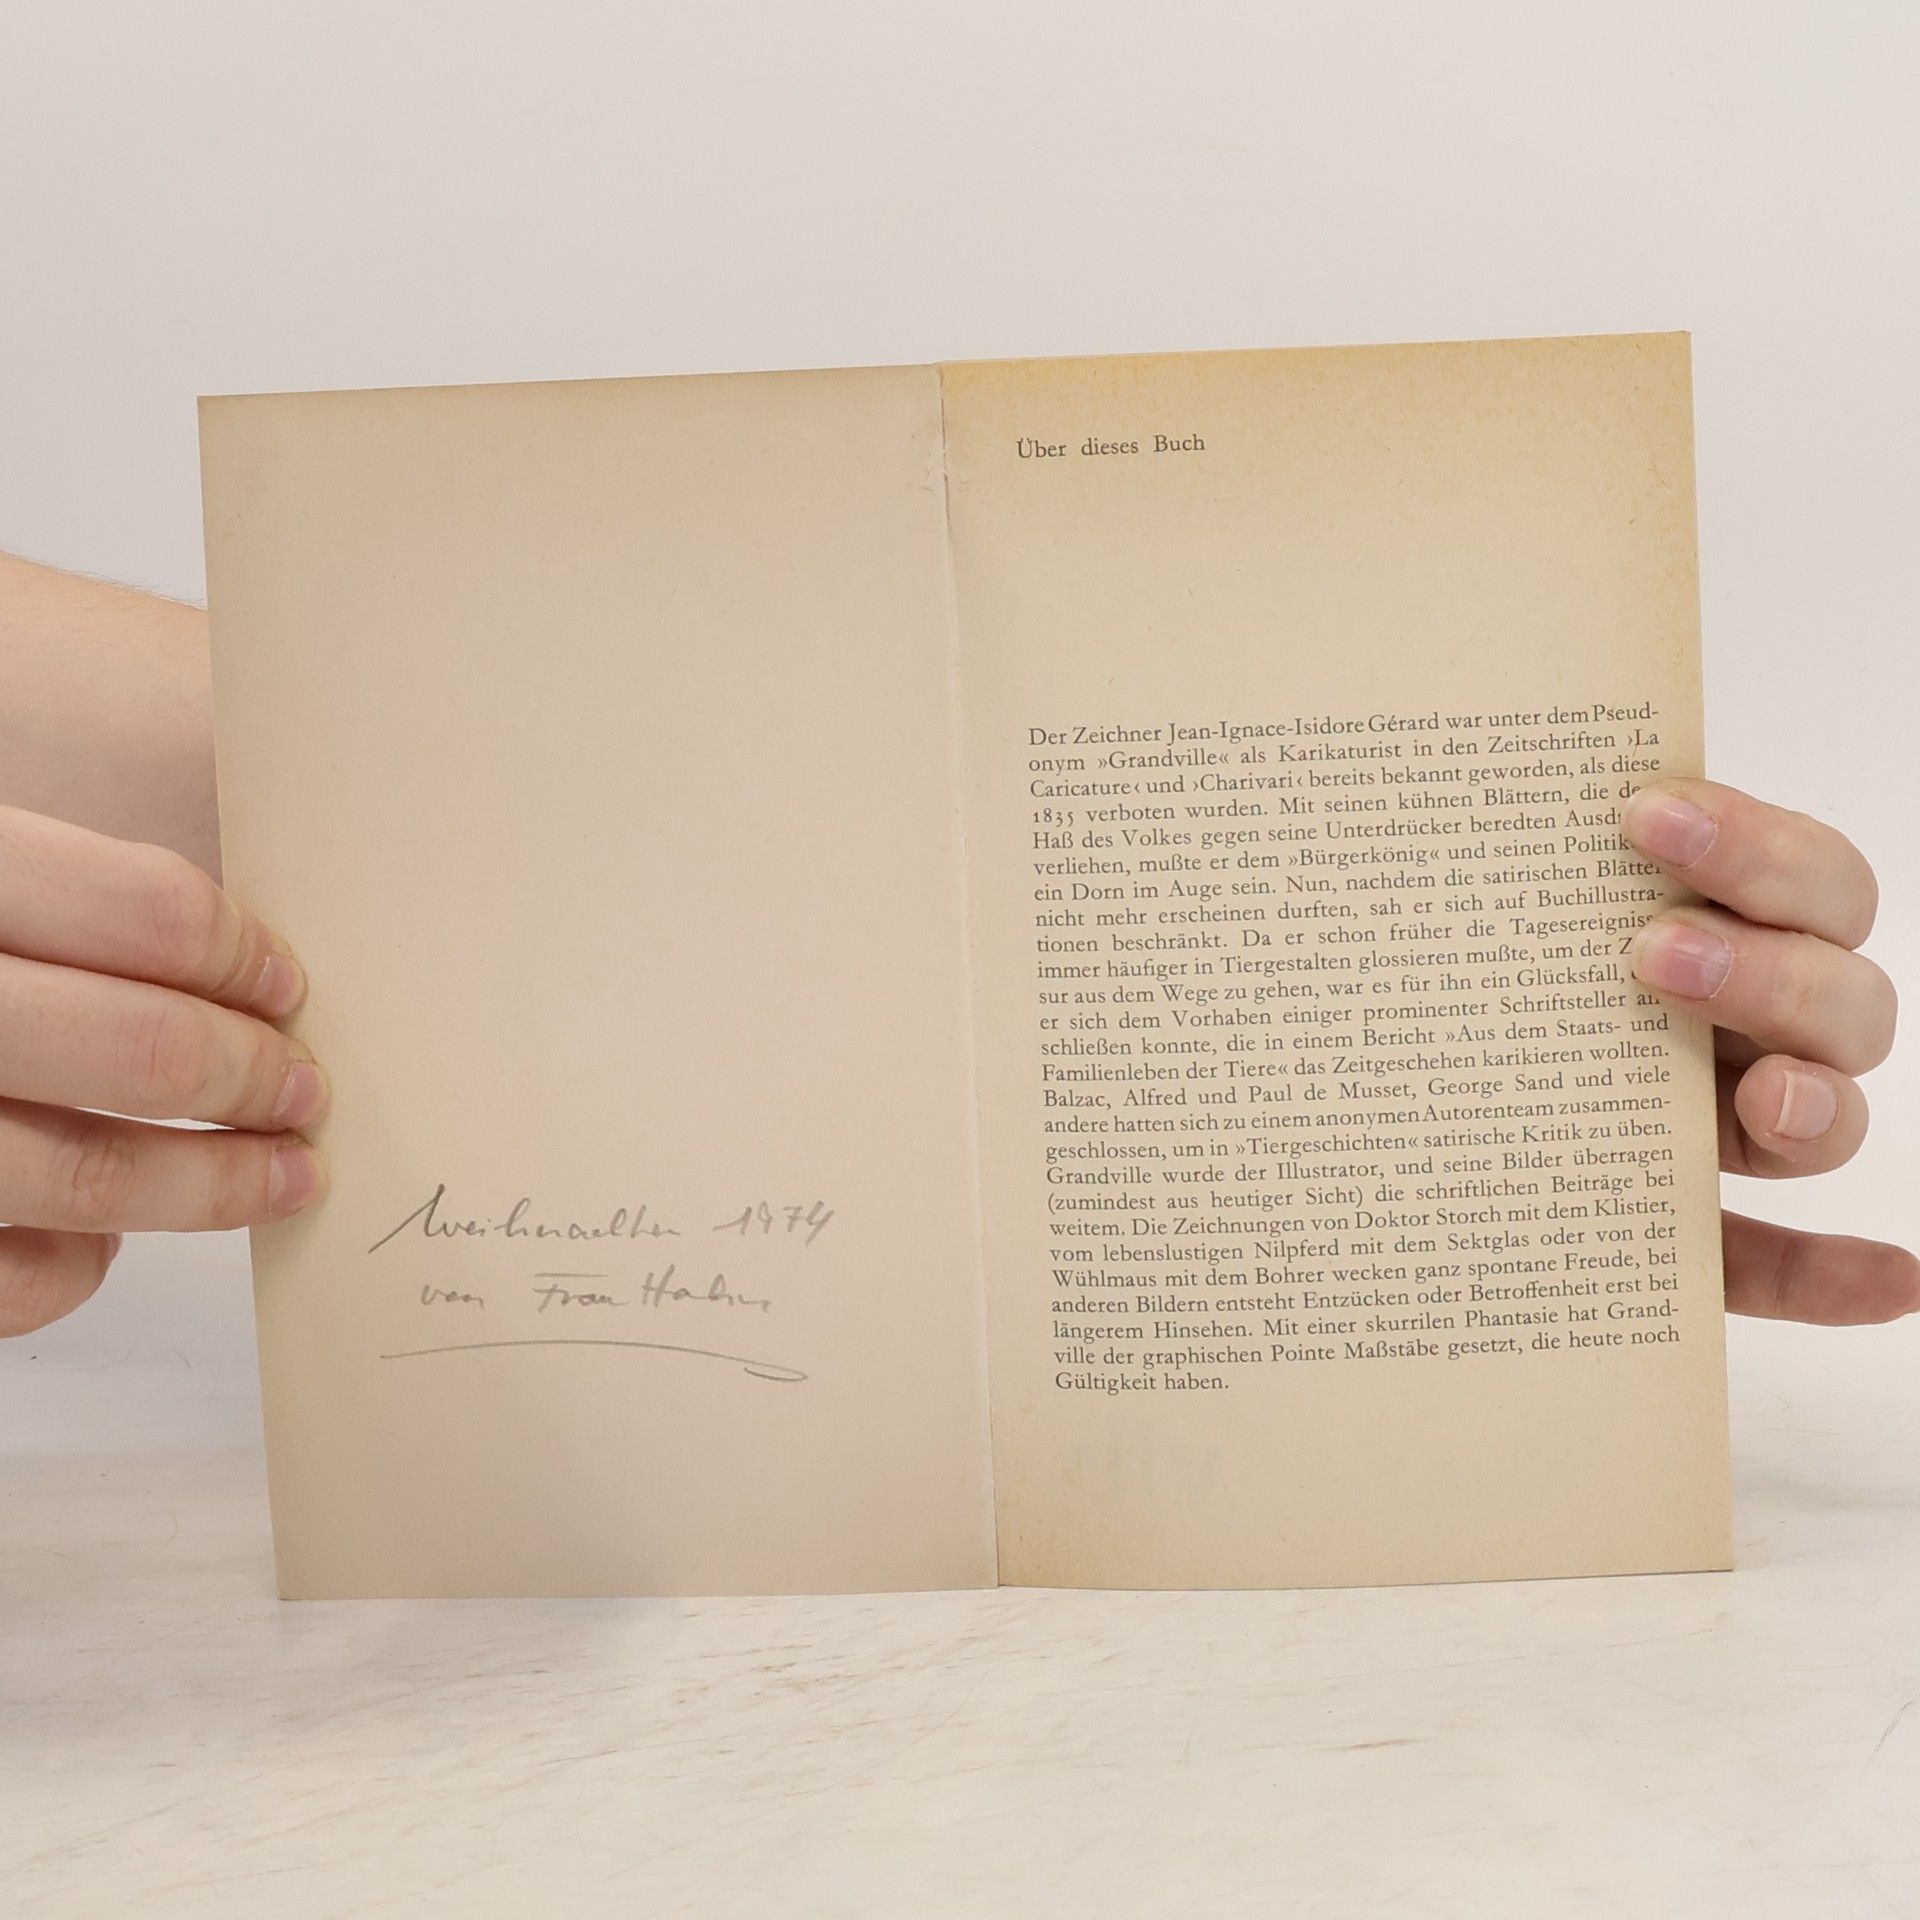 Weihnachten 1974
von Frau
Über dieses Buch
Der Zeichner Jean-Ignace-Isidore Gérard war unter dem Pseud-
onym »Grandville« als Karikaturist in den Zeitschriften ›La
Caricature‹ und ›Charivari‹ bereits bekannt geworden, als diese
1835 verboten wurden. Mit seinen kühnen Blättern, die
Haß des Volkes gegen seine Unterdrücker beredten
verliehen, mußte er dem »Bürgerkönig« und seinen
ein Dorn im Auge sein. Nun, nachdem die satirischen
nicht mehr erscheinen durften, sah er sich auf Buchillustra-
tionen beschränkt. Da er schon früher die
immer häufiger in Tiergestalten glossieren mußte, um der
sur aus dem Wege zu gehen, war es für ihn ein Glücksfall,
er sich dem Vorhaben einiger prominenter Schriftsteller
schließen konnte, die in einem Bericht »Aus dem Staats- und
Familienleben der Tiere« das Zeitgeschehen karikieren wollten.
Balzac, Alfred und Paul de Musset, George Sand und viele
andere hatten sich zu einem anonymen Autorenteam zusammen-
geschlossen, um in »Tiergeschichten« satirische Kritik zu üben.
Grandville wurde der Illustrator, und seine Bilder überragen
(zumindest aus heutiger Sicht) die schriftlichen Beiträge bei
weitem. Die Zeichnungen von Doktor Storch mit dem Klistier,
vom lebenslustigen Nilpferd mit dem Sektglas oder von der
Wühlmaus mit dem Bohrer wecken ganz spontane Freude, bei
anderen Bildern entsteht Entzücken oder Betroffenheit erst bei
längerem Hinsehen. Mit einer skurrilen Phantasie hat Grand-
ville der graphischen Pointe Maßstäbe gesetzt, die heute noch
Gültigkeit haben.